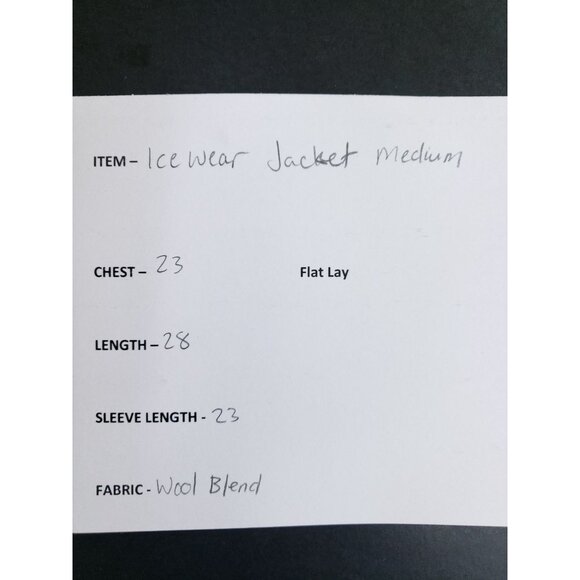 ITEM – Ice Wear Jacket Medium
CHEST – 23 Flat Lay
LENGTH – 28
SLEEVE LENGTH - 23
FABRIC - Wool Blend